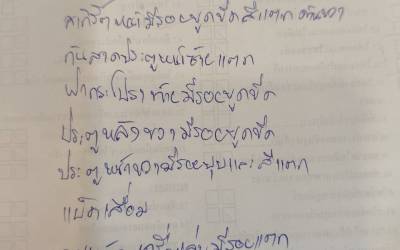 สเกิร์ตหน้ามีรอยขูดขีดสีแตกด้านขวา
กันสาดประตูหน้าซ้ายแตก
ฝากระโปรงท้ายมีรอยขูดขีด
ประตูหลังขวามีรอยขูดขีด
ประตูหน้าขวามีรอยบุบและสีแตก
แบตเสื่อม
มีรอยแตก